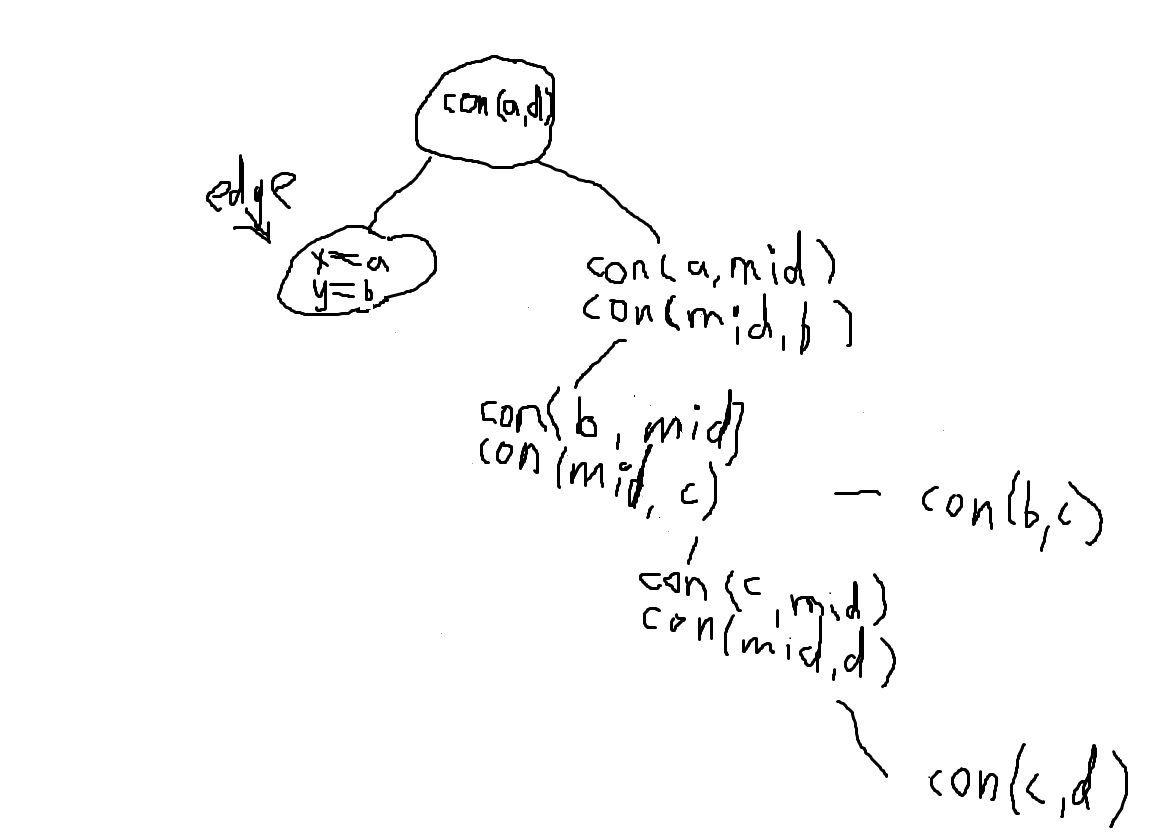 con(a,d)
edge
x=a
y=b
con(a,mid)
con(mid,b)
con(b,mid)
con(mid,c)
con(b,c)
con(c,mid)
con(mid,d)
con(c,d)